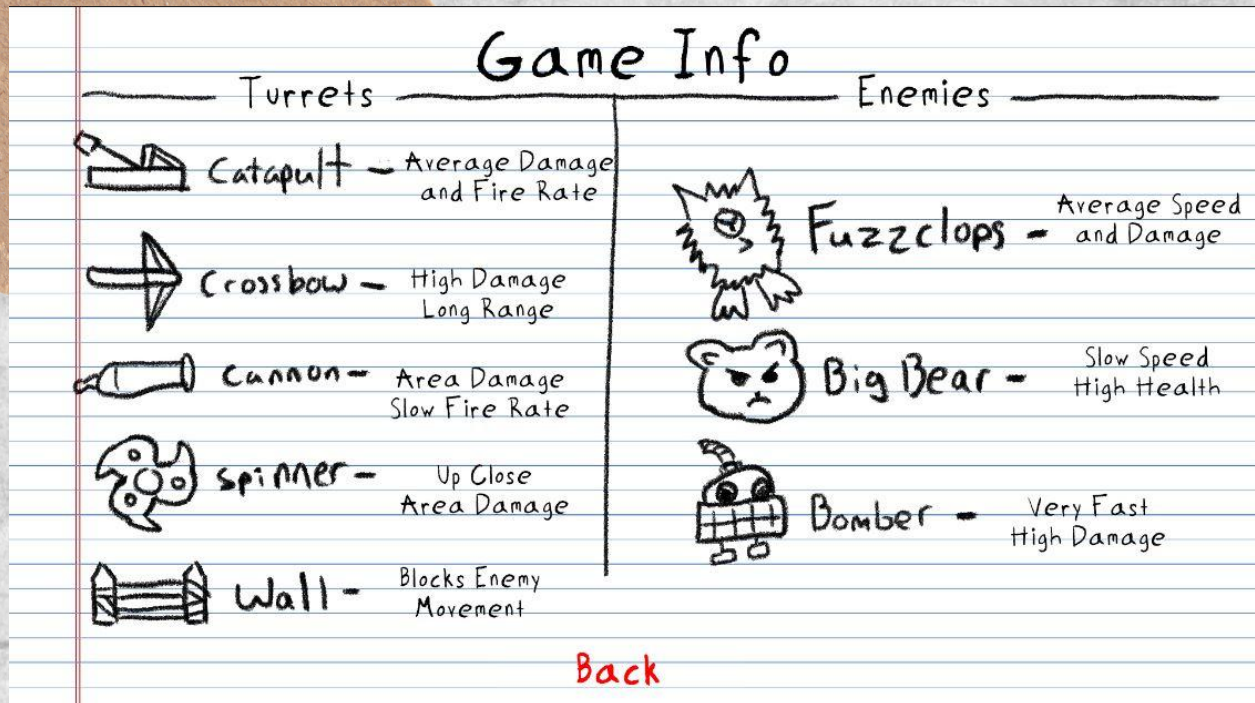 Game Info
Turrets
Catapult - Average Damage
and Fire Rate
Crossbow - High Damage
Long Range
Cannon - Area Damage
Slow Fire Rate
Spinner - Up Close
Area Damage
Wall - Blocks Enemy
Movement
Enemies
Fuzzclops - Average Speed
and Damage
Big Bear - Slow Speed
High Health
Bomber - Very Fast
High Damage
Back